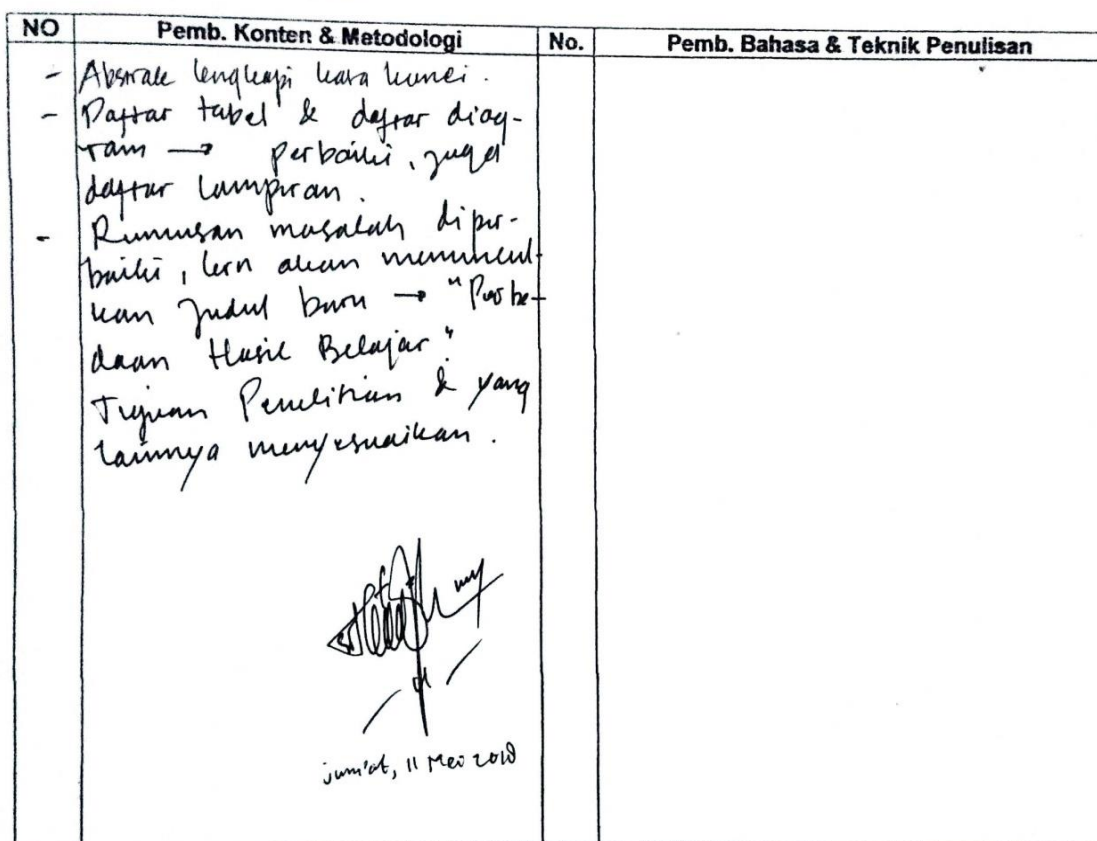 NO Pemb. Konten & Metodologi No. Pemb. Bahasa & Teknik Penulisan
- Abstrak lengkapi kata kunci.
- Daftar tabel & daftar diag-
ram → perbaiki, juga
daftar lampiran.
- Rumusan masalah diper-
baiki, krn akan memuncul-
kan judul baru → "Perbe-
daan Hasil Belajar"
Tujuan Penelitian & yang
lainnya menyesuaikan.
jum'at, 11 Mei 2018